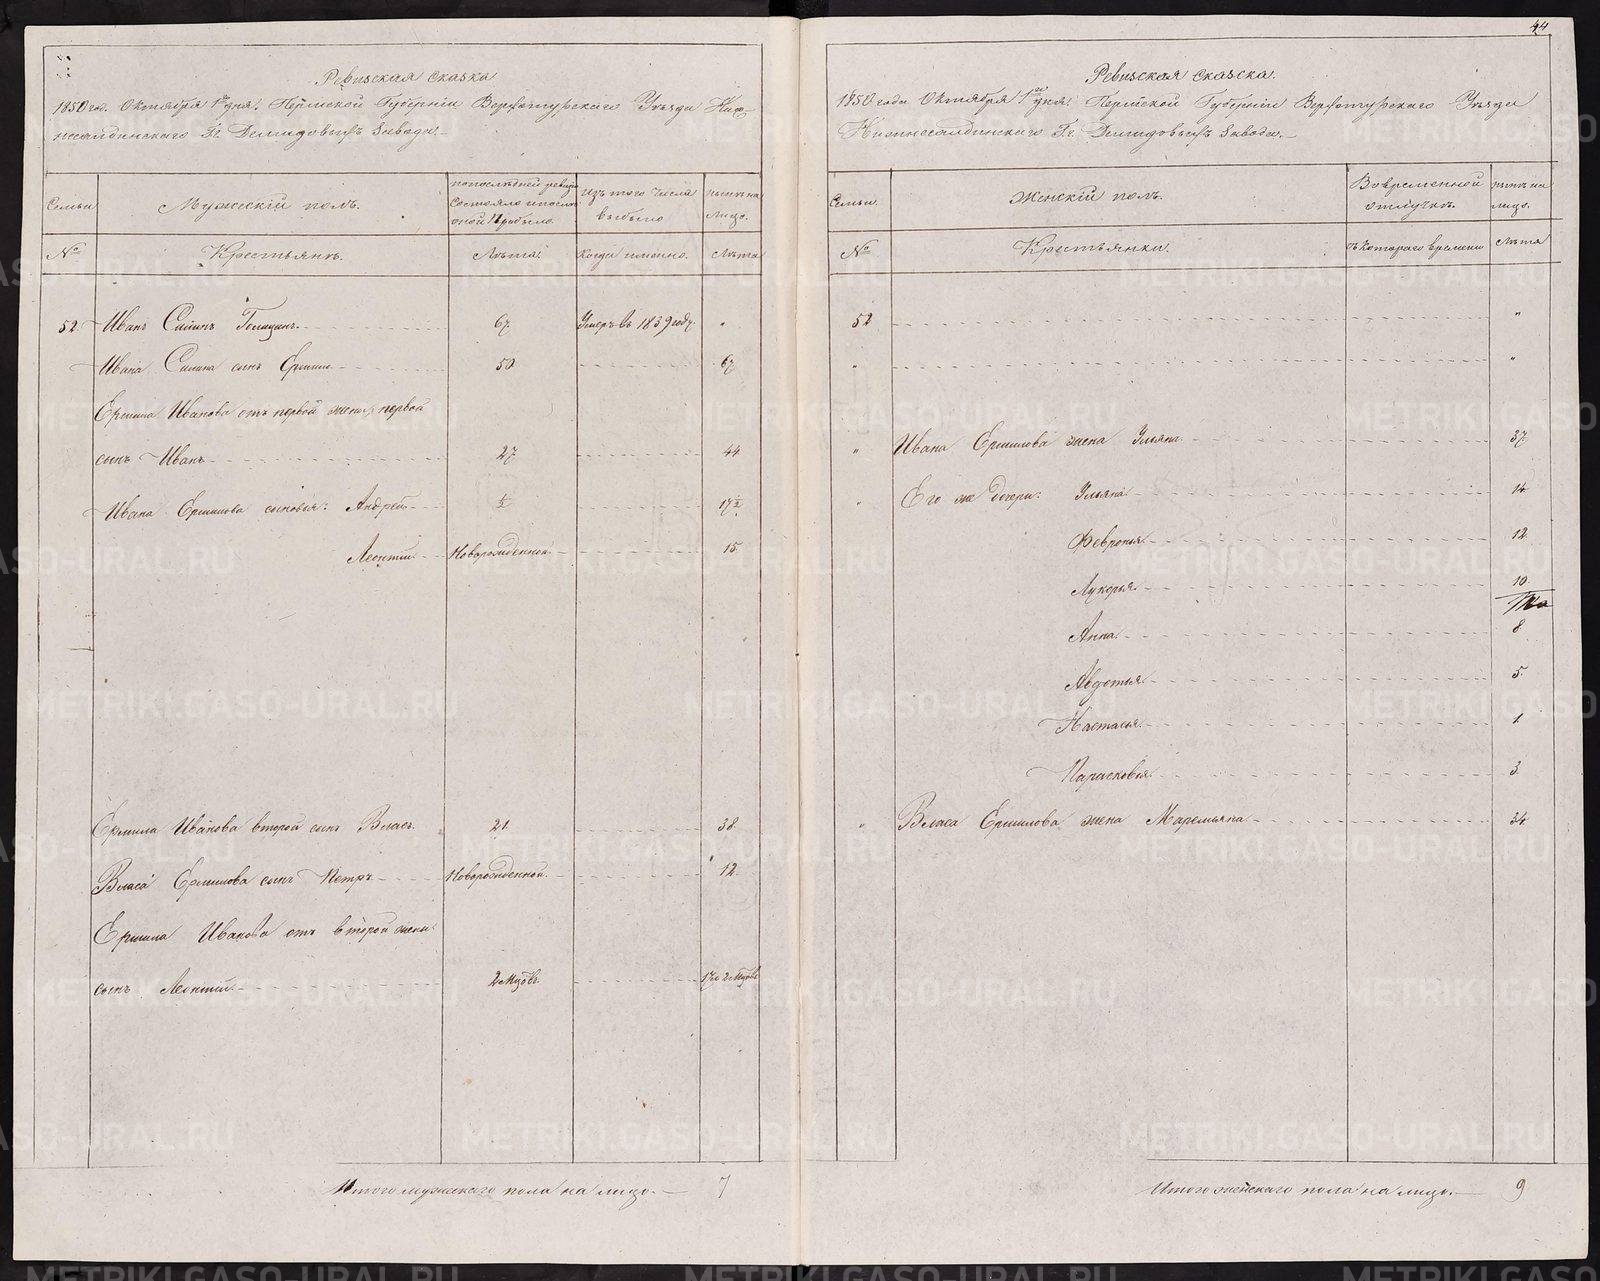 Ревизская сказка
1850 год. Октября 1го дня. Пермской Губернiи Верхотурскаго Уѣзда Ниж-
несалдинскаго Гг. Демидовыхъ Завода.
Семьи
Мужескiй полъ.
по послѣдней ревизiи состояло и после оной прибыло.
Изъ того числа выбыло
нынѣ на лицо.
№
Крестьянъ.
Лѣта.
когда именно.
Лѣта
52. Иванъ Силинъ 67. Умеръ въ 1839 году. "
Ивана Силина сынъ Ермилъ 50 67
Ермила Иванова отъ первой жены, первой
сынъ Иванъ 27 44
Ивана Ермилова сыновья: Андрей ½ 17½
Леонтiй. Новорожденной. 15.
Ермила Иванова второй сынъ Власъ. 21. 38.
Власа Ермилова сынъ Петръ Новорожденной. 12.
Ермила Иванова отъ второй жены
сынъ Леонтiй. 2 Мцовъ. 17 и 2 Мцовъ
Итого мужескаго пола на лицо. 7
44
Ревизская сказка.
1850 года Октября 1го дня. Пермской Губернiи Верхотурскаго Уѣзда
Нижнесалдинскаго Гг. Демидовыхъ Завода.
Семьи.
Женскiй полъ.
Во временной отлучкѣ.
нынѣ на лицо.
№
Крестьянки.
съ котораго времени
Лѣта
52 "
" "
" Ивана Ермилова жена Ульяна 37.
" Его же дочери: Ульяна 14.
Февронья 12.
Лукерья 10.
Анна 8.
Авдотья 5.
Настасья 1.
Парасковья 3.
" Власа Ермилова жена Маремьяна 34.
Итого женскаго пола на лицо. 9
METRIKI.GASO-URAL.RU